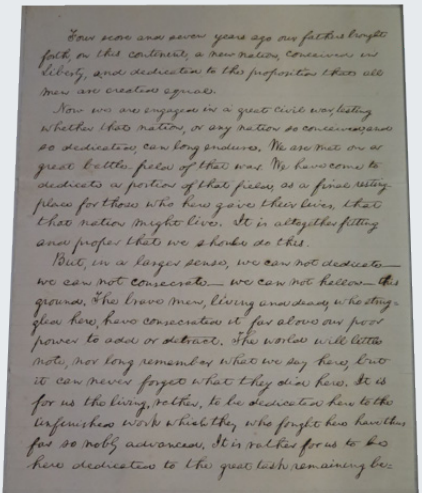 Four score and seven years ago our fathers brought
forth, on this continent, a new nation, conceived in
Liberty, and dedicated to the proposition that all
men are created equal.
Now we are engaged in a great civil war, testing
whether that nation, or any nation so conceived, and
so dedicated, can long endure. We are met on a
great battle-field of that war. We have come to
dedicate a portion of that field, as a final resting
place for those who here gave their lives, that
that nation might live. It is altogether fitting
and proper that we should do this.
But, in a larger sense, we can not dedicate—
we can not consecrate—we can not hallow—this
ground. The brave men, living and dead, who strug-
gled here, have consecrated it far above our poor
power to add or detract. The world will little
note, nor long remember what we say here, but
it can never forget what they did here. It is
for us the living, rather, to be dedicated here to the
unfinished work which they who fought here have thus
far so nobly advanced. It is rather for us to be
here dedicated to the great task remaining be-